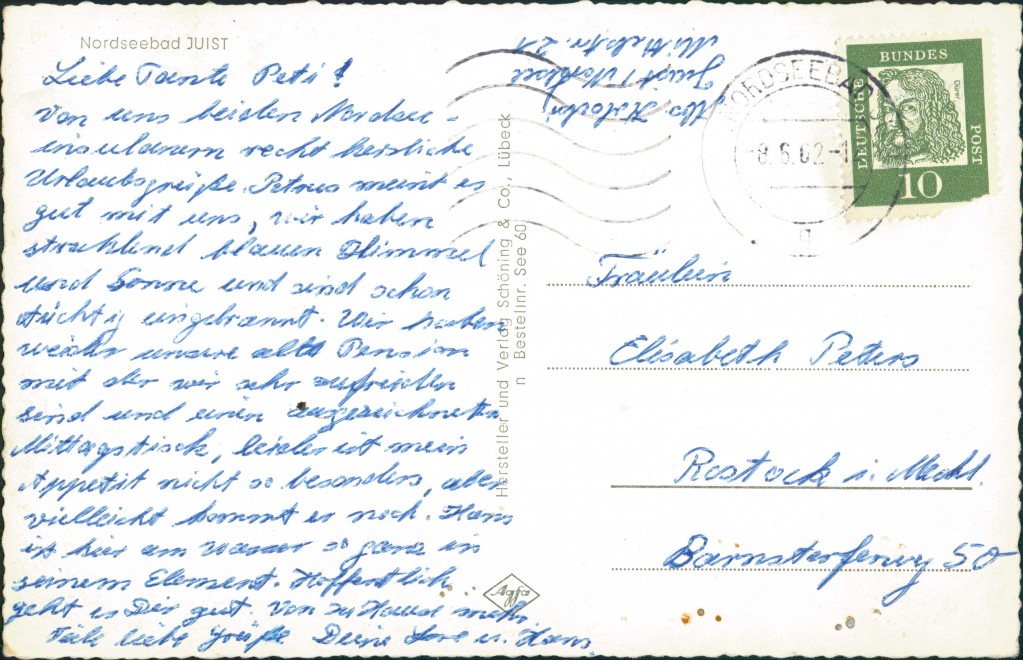 Nordseebad JUIST
Liebe Tante Peti!
Von uns beiden Nordsee-
insulanern recht herzliche
Urlaubsgrüße. Petrus meint es
gut mit uns, wir haben
strahlend blauen Himmel
und Sonne und sind schon
tüchtig eingebrannt. Wir haben
wieder unsere alte Pension
mit der wir sehr zufrieden
sind und einen ausgezeichneten
Mittagstisch, leider ist mein
Appetit nicht so besonders, aber
vielleicht kommt er noch. Hans
ist hier am Wasser so ganz in
seinem Element. Hoffentlich
geht es Dir gut. Von zu Hause mehr.
Viele liebe Grüße Deine Lore u. Hans.
Hersteller und Verlag Schöning & Co., Lübeck
n Bestellnr. See 60
Agfa
Abs.
Juist / Nordsee
Mittelstr. 21
NORDSEEBAD
8.6.62-1
g
DEUTSCHE
BUNDES
POST
Dürer
10
Fräulein
Elisabeth Peters
Rostock i. Meckl.
Barnstorferweg 50